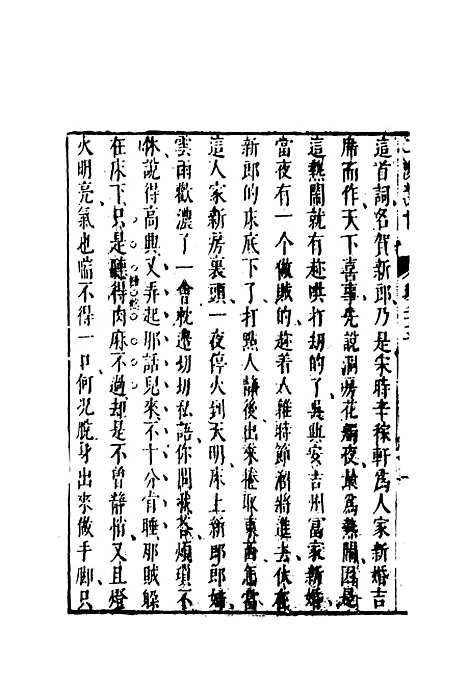 這首詞名賀新郎乃是宋時辛稼軒爲人家新婚吉
席而作天下喜事先說洞房花燭夜最爲熱鬧因是
這熱鬧就有趂哄打劫的了吳興安吉州富家新婚
當夜有一个做賊的趂着人雜時節溜將進去伏在
新郎的床底下了打點人靜後出來捲取東西怎當
這人家新房裏頭一夜停火到天明床上新郎新婦
雲雨歡濃了一會枕邊切切私語你問我荅煩瑣不
休說得高興又弄起那話兒來不十分肯睡那賊躲
在床下只是聽得肉麻不過却是不曾靜悄又且燈
火明亮氣也喘不得一口何况脫身出來做手脚只